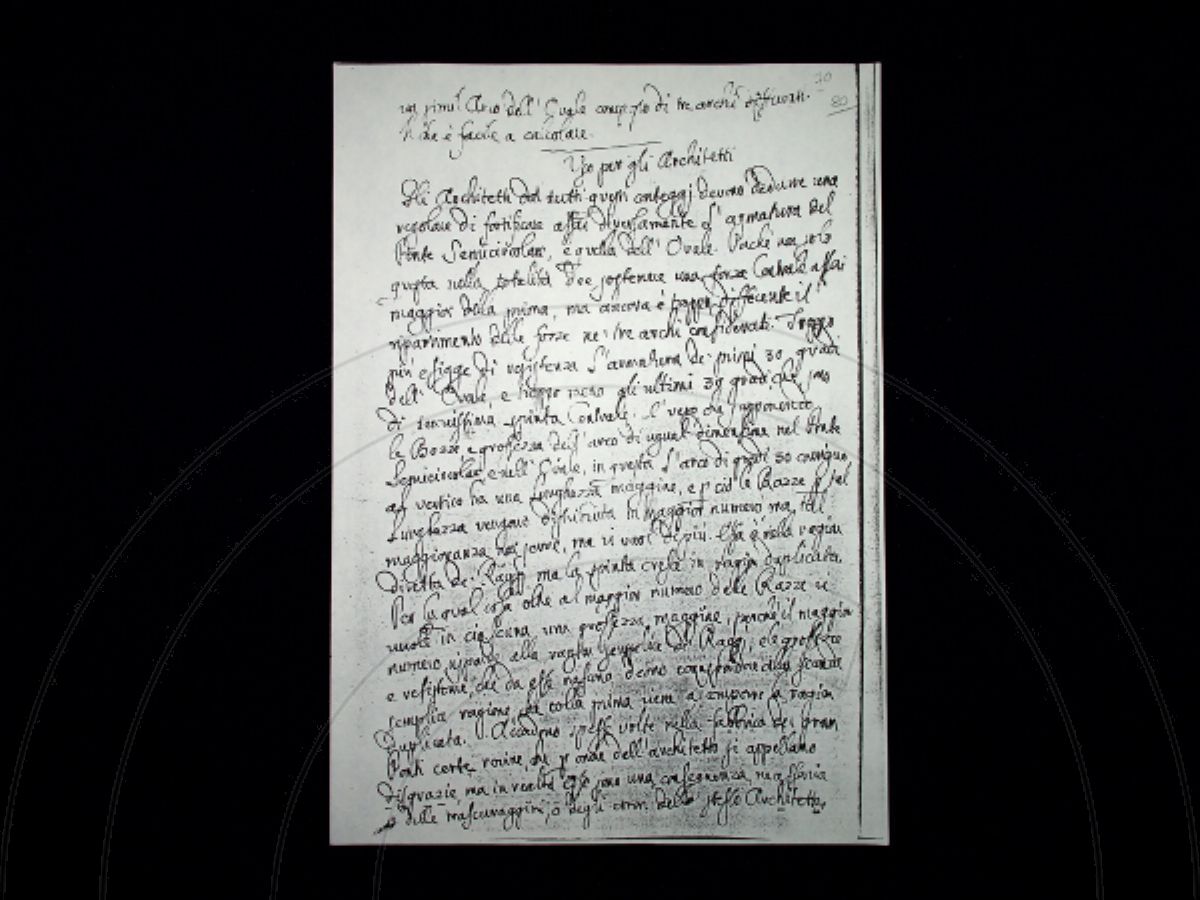 70
80
un simil Arco dell' Ovale composto di tre archi differenti.
è facile a calcolare.
Uso per gli Architetti
Gli Architetti da tutti questi conteggi devono dedurre una
regola di fortificare assai diversamente l'armatura del
Ponte Semicircolare, e quella dell' Ovale. non solo
questa nella totalità dee sostenere una forza assai
maggior della prima, ma ancora è differente il
ripartimento delle forze ne' tre archi considerati. Troppo
più esigge di resistenza l'armatura de' primi 30 gradi
dell' Ovale, e troppo meno gli ultimi 39 gradi, che sono
di tenuissima spinta. È vero che supponendo
le Bozze e grossezza dell' arco di ugual dimensione nel Ponte
Semicircolare e nell' Ovale, in questa l'arco di gradi 30
al vertice ha una lunghezza maggiore, e per ciò le Razze per tal
lunghezza vengono distribuite in maggior numero ma tal
maggioranza non giova, ma vi vuol di più. Essa è nella ragion
diretta de' Raggi ma la spinta cresce in ragion duplicata.
Per la qual cosa oltre al maggior numero delle Razze vi
vuole in ciascuna una grossezza maggiore, perchè il maggior
numero risponde alla ragion semplice dei Raggi, e le grossezze
e resistenze, che da esse nascono devono
semplice ragione colla prima viene a componere la ragion
duplicata. Accadono spesse volte nella fabbrica de' gran
Ponti certe rovine, che per onor dell' architetto si appellano
disgrazie, ma in realtà esse sono una conseguenza necessaria
delle o degli errori dello stesso Architetto,